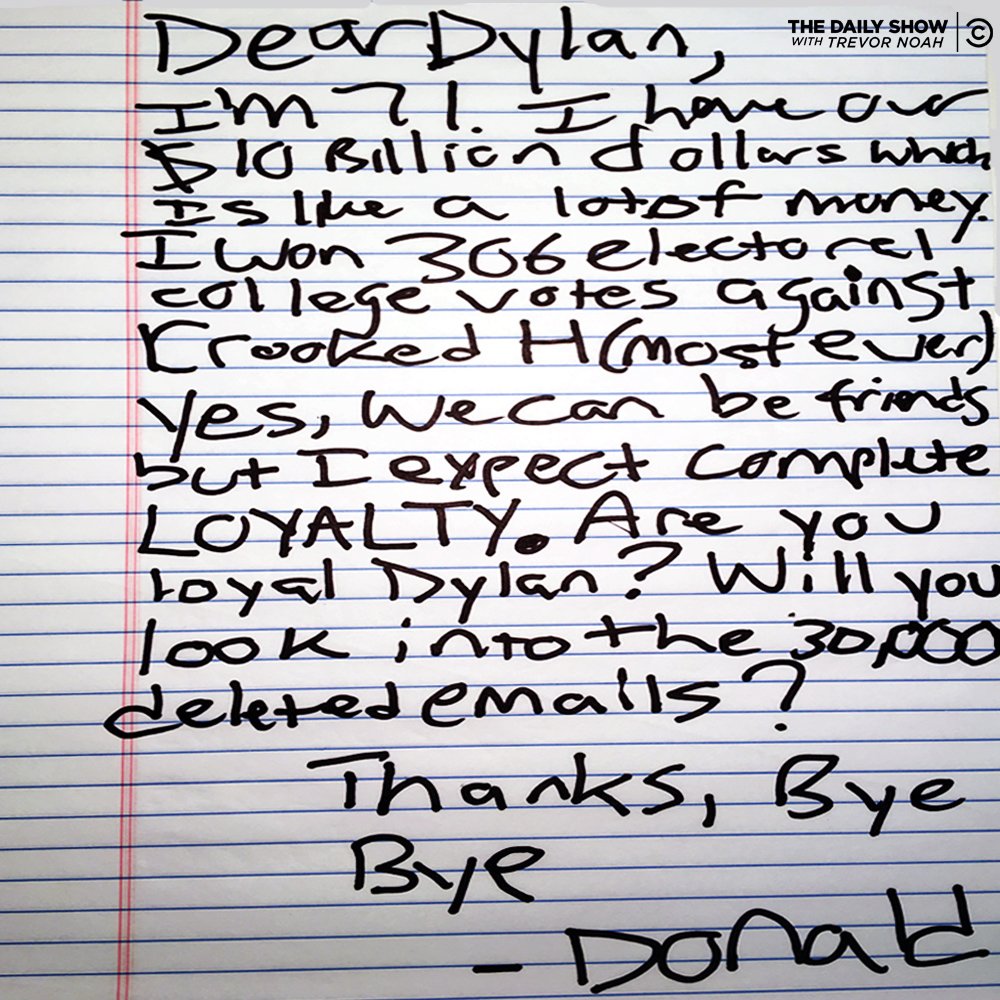 THE DAILY SHOW
WITH TREVOR NOAH
Dear Dylan,
I'm 71. I have over
$10 Billion dollars which
Is like a lot of money.
I won 306 electoral
college votes against
Crooked H (most ever)
Yes, we can be friends
but I expect complete
LOYALTY. Are you
loyal Dylan? Will you
look into the 30,000
deleted emails?
Thanks, Bye
Bye
- Donald